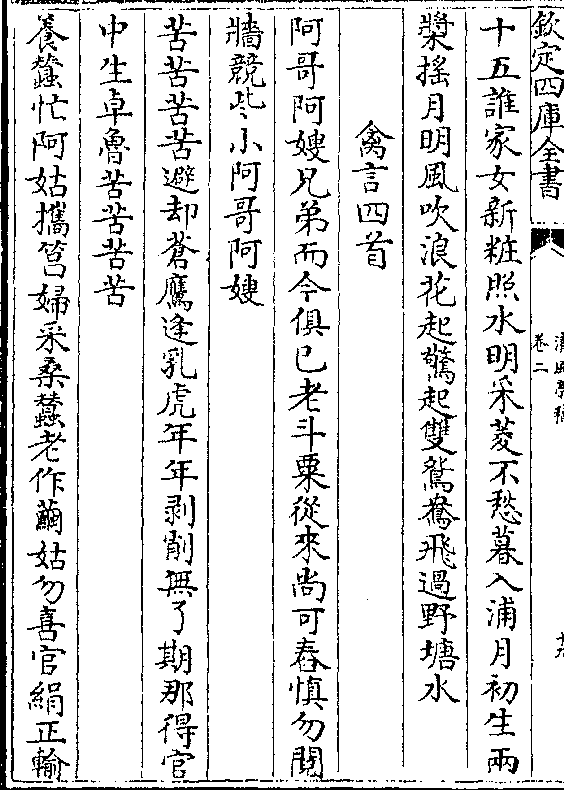 欽定四庫全書
卷二
十五誰家女新粧照水明采菱不愁暮入浦月初生兩
槳摇月明風吹浪花起驚起雙鴛鴦飛過野塘水
禽言四首
阿哥阿嫂兄弟而今俱已老斗粟從來尚可舂慎勿鬩
牆競些小阿哥阿嫂
苦苦苦苦避却蒼鷹逢乳虎年年剥削無了期那得官
中生卓魯苦苦苦苦
養蠶忙阿姑攜筥婦采桑蠶老作繭姑勿喜官絹正輸